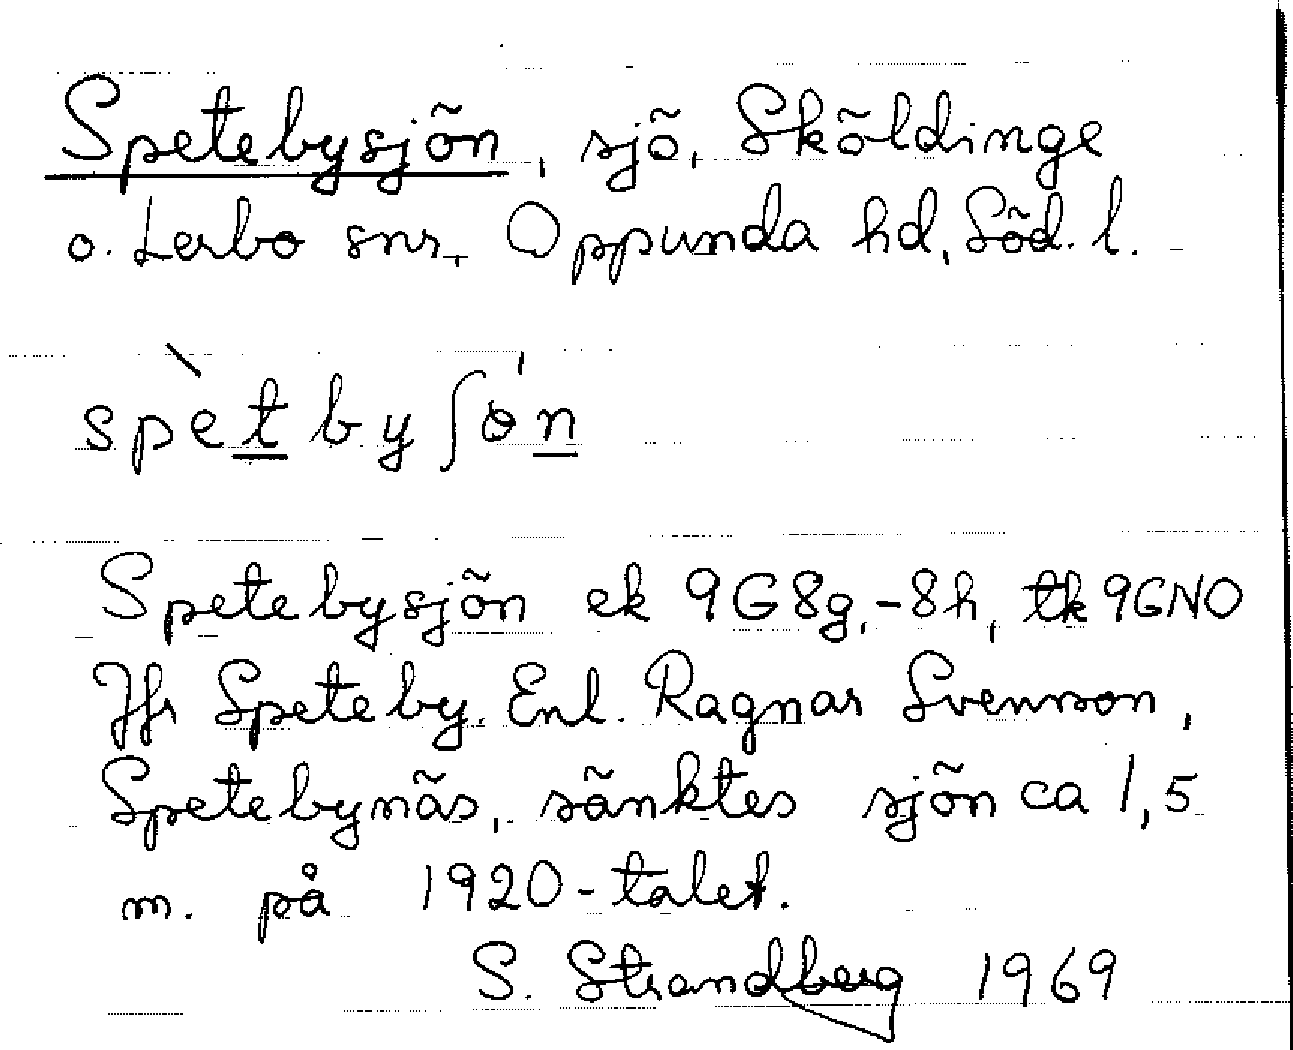 Spetebysjön, sjö, Sköldinge
o. Lerbo snr, Oppunda hd, Söd. l.
spètbyʃö́n
Spetebysjön ek 9G8g,-8h, tk 9GNO
Jfr Speteby. Enl. Ragnar Svensson,
Spetebynäs, sänktes sjön ca 1,5
m. på 1920-talet.
S. Strandberg 1969